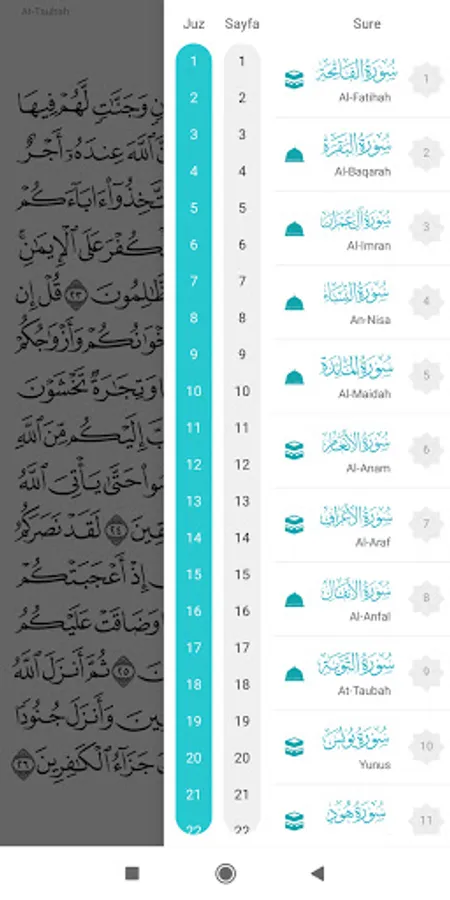 At-Taubah
وَجَنَّٰتٍ لَّهُمْ فِيهَا
ٱللَّهَ عِندَهُۥٓ أَجْرٌ
ءَابَآءَكُمْ
عَلَى ٱلْإِيمَٰنِ
٢٣ قُلْ إِن
وَأَزْوَٰجُكُمْ
وَتِجَٰرَةٌ تَخْشَوْنَ
إِلَيْكُم مِّنَ ٱللَّهِ
حَتَّىٰ يَأْتِىَ ٱللَّهُ
٢٤ لَقَدْ نَصَرَكُمُ
إِذْ أَعْجَبَتْكُمْ
وَضَاقَتْ عَلَيْكُمُ
٢٥ ثُمَّ أَنزَلَ ٱللَّهُ
وَأَنزَلَ جُنُودًا
جَزَآءُ ٱلْكَٰفِرِينَ ٢٦
Juz
1
2
3
4
5
6
7
8
9
10
11
12
13
14
15
16
17
18
19
20
21
22
Sayfa
1
2
3
4
5
6
7
8
9
10
11
12
13
14
15
16
17
18
19
20
21
22
Sure
سُورَةُ الفَاتِحَة 1
Al-Fatihah
سُورَةُ البَقَرَة 2
Al-Baqarah
سُورَةُ آل عِمرَان 3
Al-Imran
سُورَةُ النِّسَاء 4
An-Nisa
سُورَةُ المَائدة 5
Al-Maidah
سُورَةُ الأنعَام 6
Al-Anam
سُورَةُ الأعرَاف 7
Al-Araf
سُورَةُ الأنفَال 8
Al-Anfal
سُورَةُ التوبَة 9
At-Taubah
سُورَةُ يُونس 10
Yunus
سُورَةُ هُود 11